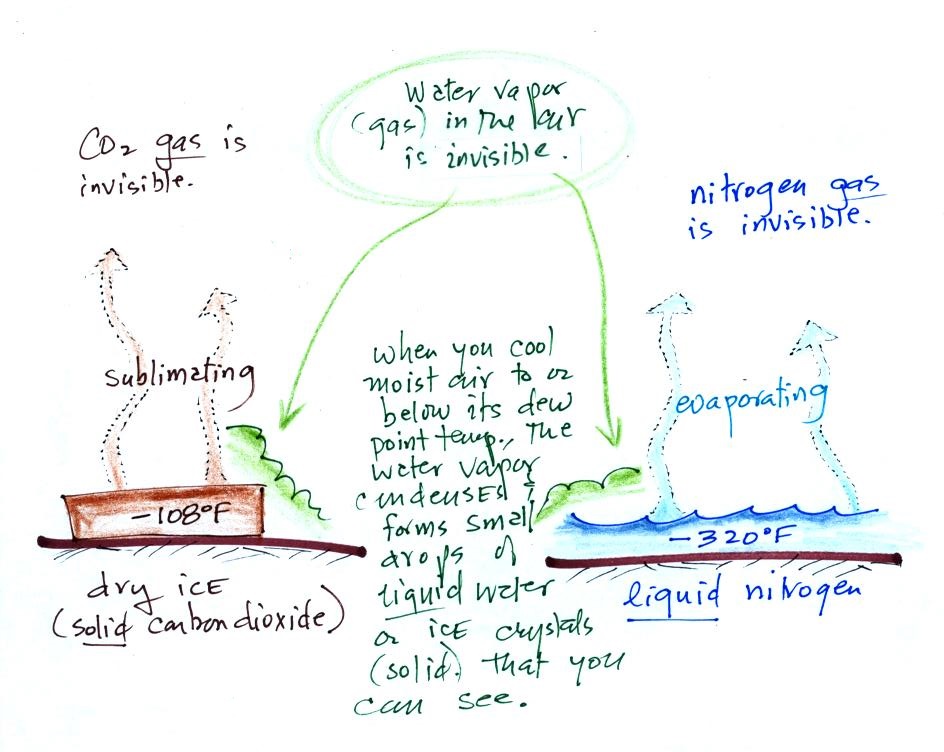 Water vapor
(gas) in the air
is invisible.
CO₂ gas is
invisible.
nitrogen gas
is invisible.
sublimating
-108°F
dry ice
(solid carbon dioxide)
when you cool
moist air to or
below its dew
point temp., the
water vapor
condenses &
forms small
drops of
liquid water
or ice crystals
(solid) that you
can see.
evaporating
-320°F
liquid nitrogen